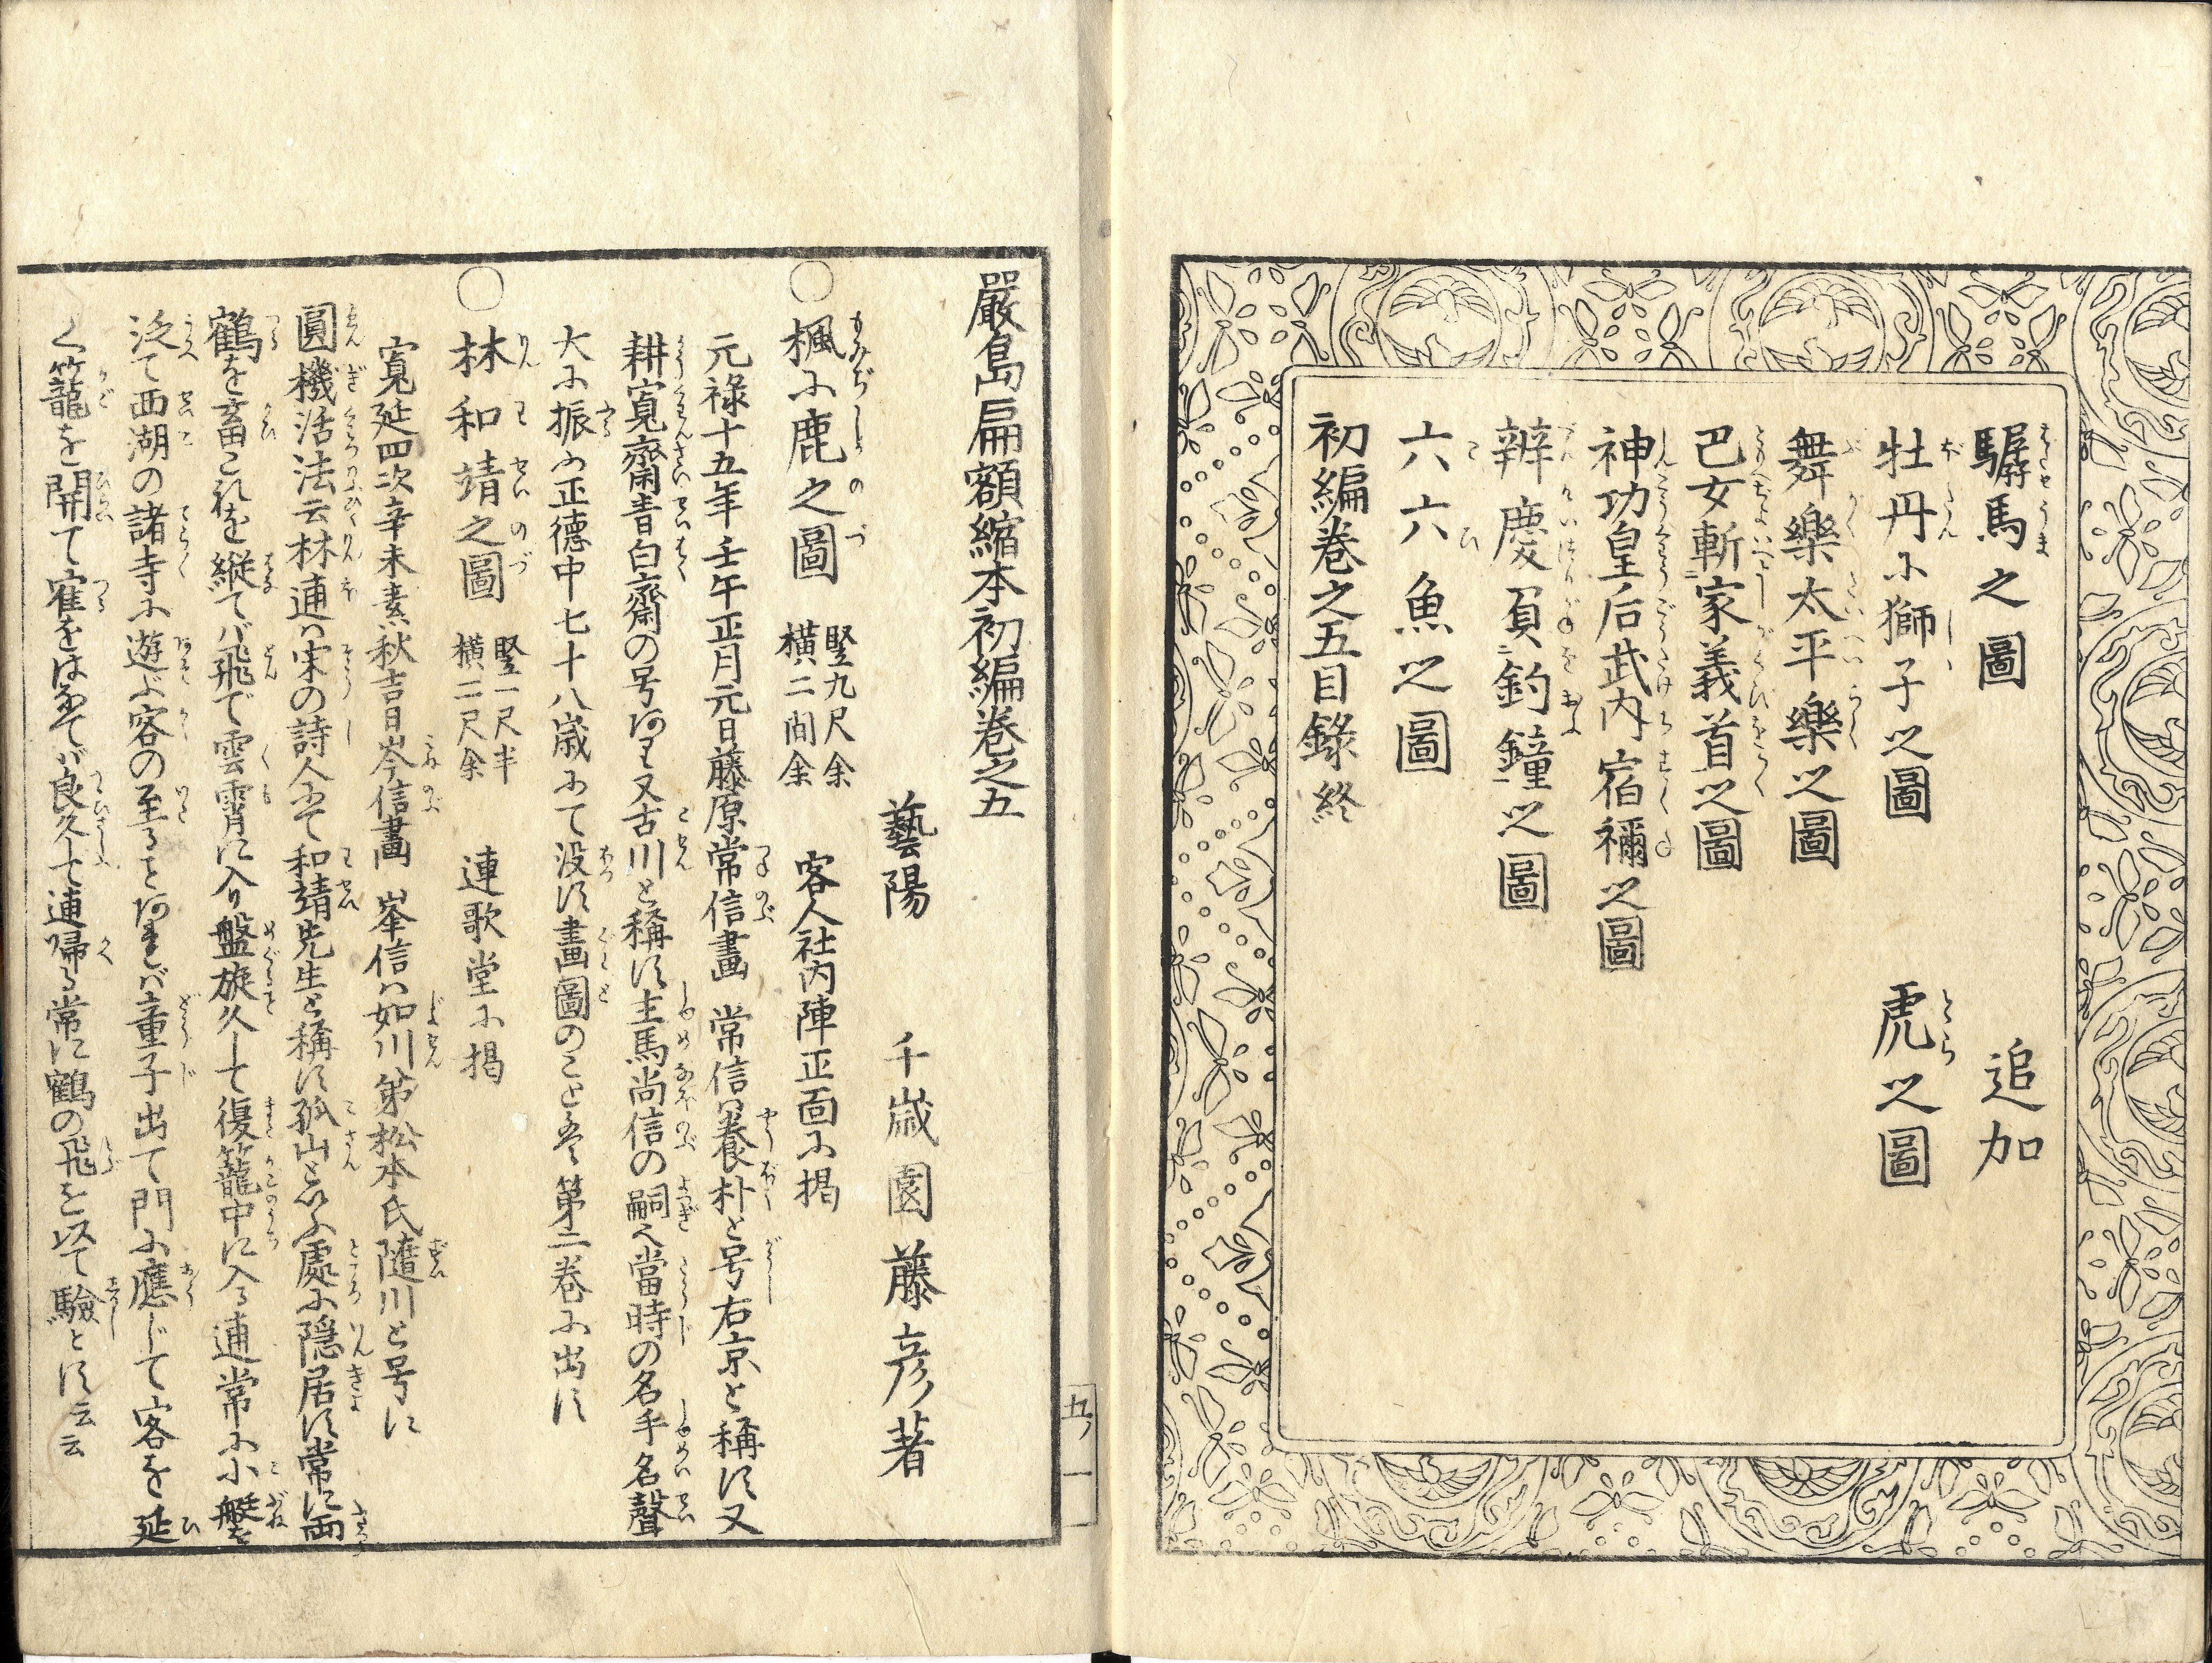 驏馬之圖
牡丹ニ獅子之圖
舞樂太平樂之圖
巴女斬家義首之圖
神功皇后武内宿禰之圖
辨慶負釣鐘之圖
六六魚之圖
初編巻之五目錄終
追加
虎之圖
嚴島扁額縮本初編巻之五
藝陽 千歳園藤彦著
○楓に鹿之圖 竪九尺余 横二間余 客人社内陣正面に掲
元祿十五年壬午正月元日藤原常信畫 常信ハ養朴と号右京と稱す又
耕寛齋青白齋の号あり又古川と稱す主馬尚信の嗣也當時の名手名聲
大に振ふ正徳中七十八歳にて没す畫圖のこと第二巻に出す
○林和靖之圖 竪一尺半 横二尺余 連歌堂に掲
寛延四次辛未素秋吉日岑信畫 峯信ハ如川第松本氏隨川と号す
圓機活法云林逋ハ宋の詩人にて和靖先生と稱す孤山といふ處に隠居す常に両
鶴を畜これを縦てバ飛で雲霄に入り盤旋久して復籠中に入る逋常に小艇を
泛て西湖の諸寺に遊ぶ客の至ることあれバ童子出て門に應じて客を延
く籠を開て寉をはなてバ良久して逋帰る常に鶴の飛を以て驗とす云云
五ノ一